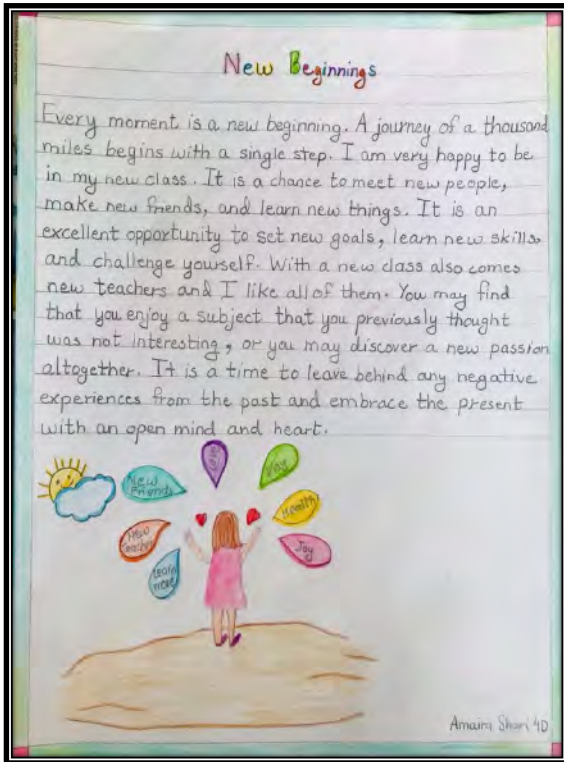 New Beginnings
Every moment is a new beginning. A journey of a thousand
miles begins with a single step. I am very happy to be
in my new class. It is a chance to meet new people,
make new friends, and learn new things. It is an
excellent opportunity to set new goals, learn new skills,
and challenge yourself. With a new class also comes
new teachers and I like all of them. You may find
that you enjoy a subject that you previously thought
was not interesting, or you may discover a new passion
altogether. It is a time to leave behind any negative
experiences from the past and embrace the present
with an open mind and heart.
New
Friends
Health
New
Teacher
Joy
Learn
more
Amaira Shori 4D